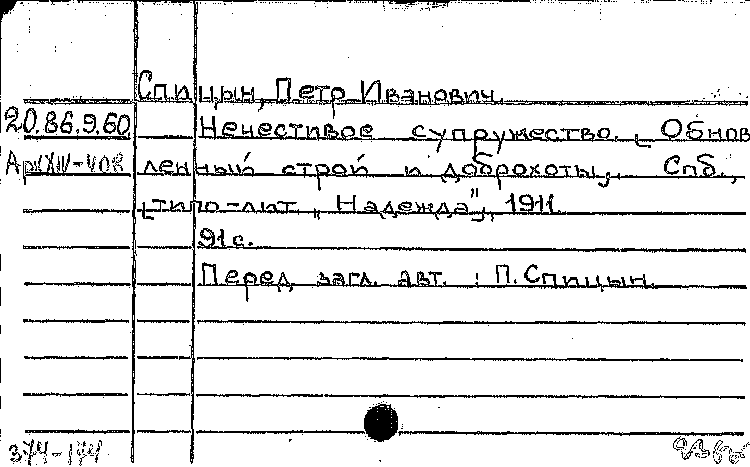 Спицын, Петр Иванович.
20.86.9.60 Нечестивое супружество. [Обнов
ленный строй и доброхоты], Спб.,
[типо-лит. „Надежда"], 1911.
91 с.
Перед загл. авт. : П. Спицын.
374-144